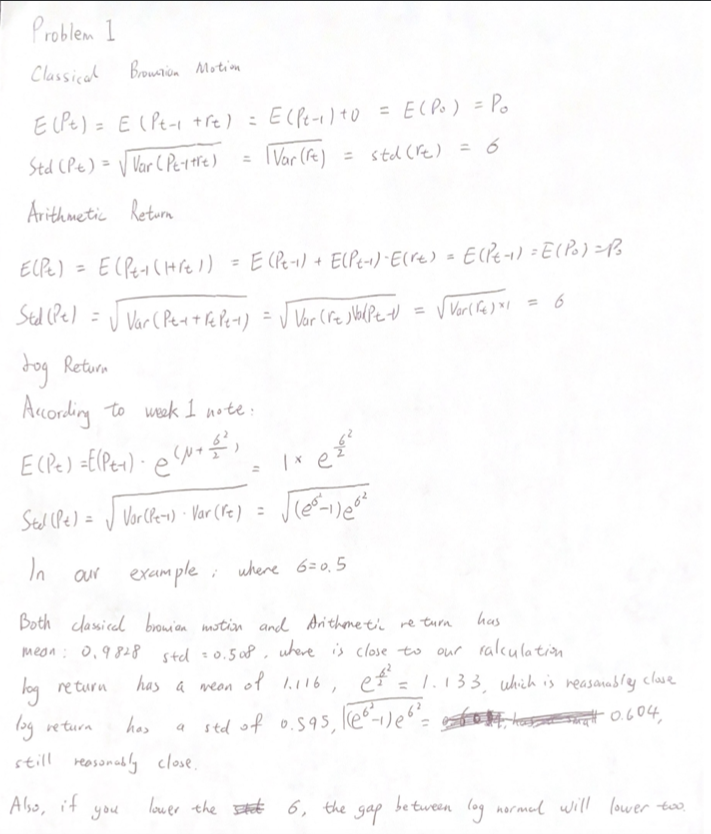 Problem 1
Classical Brownian Motion
E(Pt) = E(Pt-1 + rt) = E(Pt-1) + 0 = E(P0) = P0
Std(Pt) = √Var(Pt-1+rt) = √Var(rt) = std(rt) = 6
Arithmetic Return
E(Pt) = E(Pt-1(1+rt)) = E(Pt-1) + E(Pt-1)·E(rt) = E(Pt-1) = E(P0) = P0
Std(Pt) = √Var(Pt-1 + rtPt-1) = √Var(rt)Var(Pt-1) = √Var(rt)×1 = 6
Log Return
According to week 1 note:
E(Pt) = E(Pt-1) · e^(μ + 6²/2) = 1 × e^(6²/2)
Std(Pt) = √Var(Pt-1) · Var(rt) = √(e^6²-1)e^6²
In our example, where 6=0.5
Both classical brownian motion and Arithmetic return has
mean: 0.9828 std = 0.508, where is close to our calculation
log return has a mean of 1.116, e^(6²/2) = 1.133, which is reasonabley close
log return has a std of 0.595, √(e^6²-1)e^6² = 0.604,
still reasonably close.
Also, if you lower the 6, the gap between log normal will lower too.